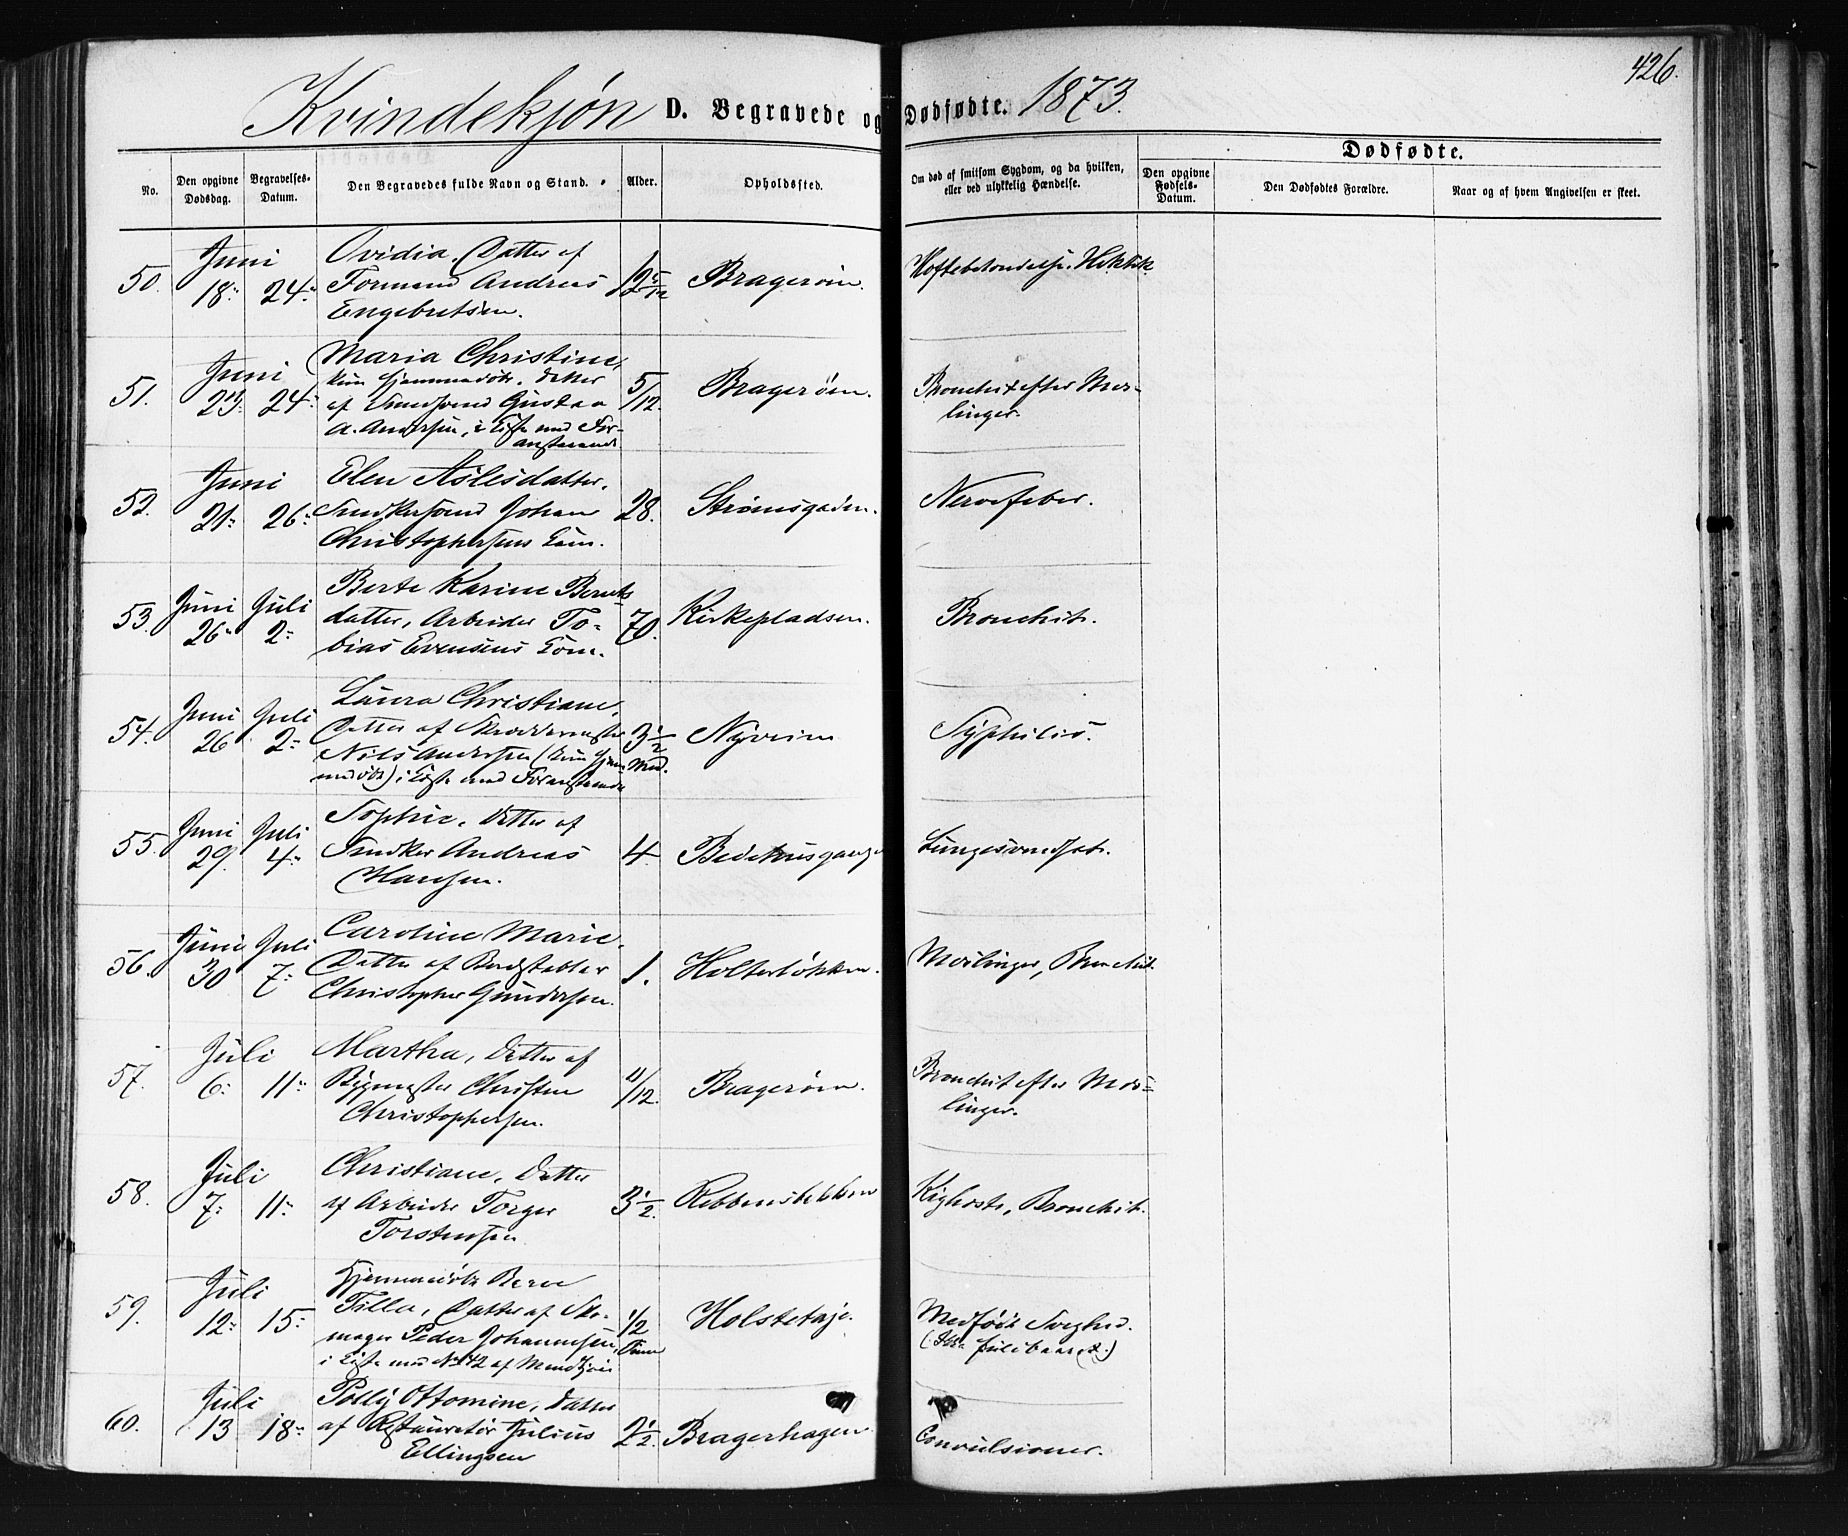 426.
Kvindekjøn D. Begravede og Dødfødte. 1873.
No.
Den opgivne Dødsdag.
Begravelses-Datum.
Den Begravedes fulde Navn og Stand.
Alder.
Opholdssted.
Om død af smitsom Sygdom, og da hvilken,
eller ved ulykkelig Hændelse.
Dødfødte.
Den opgivne Fødsels-Datum.
Den Dødfødtes Forældre.
Naar og af hvem Angivelsen er skeet.
50. Juni 18. 24. Ovidia, Datter af
Formand Andreas
Engebretsen.
12 5/12 Bragerøen. Hoftebetændelse. Hektik
51. Juni 23. 24. Maria Christine,
kun hjemmedøbt. Datter
af Gustav
A. Andersen, i Kiste med
5/12. Bragerøen. Bronchit efter Mes-
linger.
52. Juni 21. 26. Elen Aslesdatter,
Snedkersvend Johan
Christophersens Kone.
28. Strømsgaden. Nervefeber.
53. Juni 26. Juli 2. Berte Karine Bernts
datter, Arbeider To-
bias Evensens Kone.
70. Kirkepladsen. Bronchit.
54. Juni 26 Juli 2. Laura Christiane,
Datter af Skræddermester
Nils Andersen (kun hjem-
medøbt) i Kiste med
3 1/2 Mnd. Nyveien Syphilis.
55. Juni 29. Juli 4. Sophie, Datter af
Snedker Andreas
Hansen.
4. Bedehusgangen Lungesvindsot.
56. Juni 30 Juli 7. Caroline Marie,
Datter af Bordstabler
Christopher Gundersen.
1. Holterløkken. Meslinger, Bronchit.
57. Juli 6. 11. Martha, Datter af
Bygmester Christen
Christophersen.
11/12. Bragerøen. Bronchit efter Mes-
linger.
58. Juli 7. 11. Christiane, Datter
af Arbeider Torger
Torstensen
3 1/2. Kighoste, Bronchit.
59. Juli 12. 15. Hjemmedøbte Berte
Tilla, Datter af Sko-
mager Peder Johannesen,
i Kiste med No 42 af Mandkjøn
1/2 Time Holstetajе. Medfødt Svaghed.
60. Juli 13 18. Polly Ottomine, Datter
af Restauratør Julius
Ellingsen
2 1/2. Bragerhagen Convulsioner.